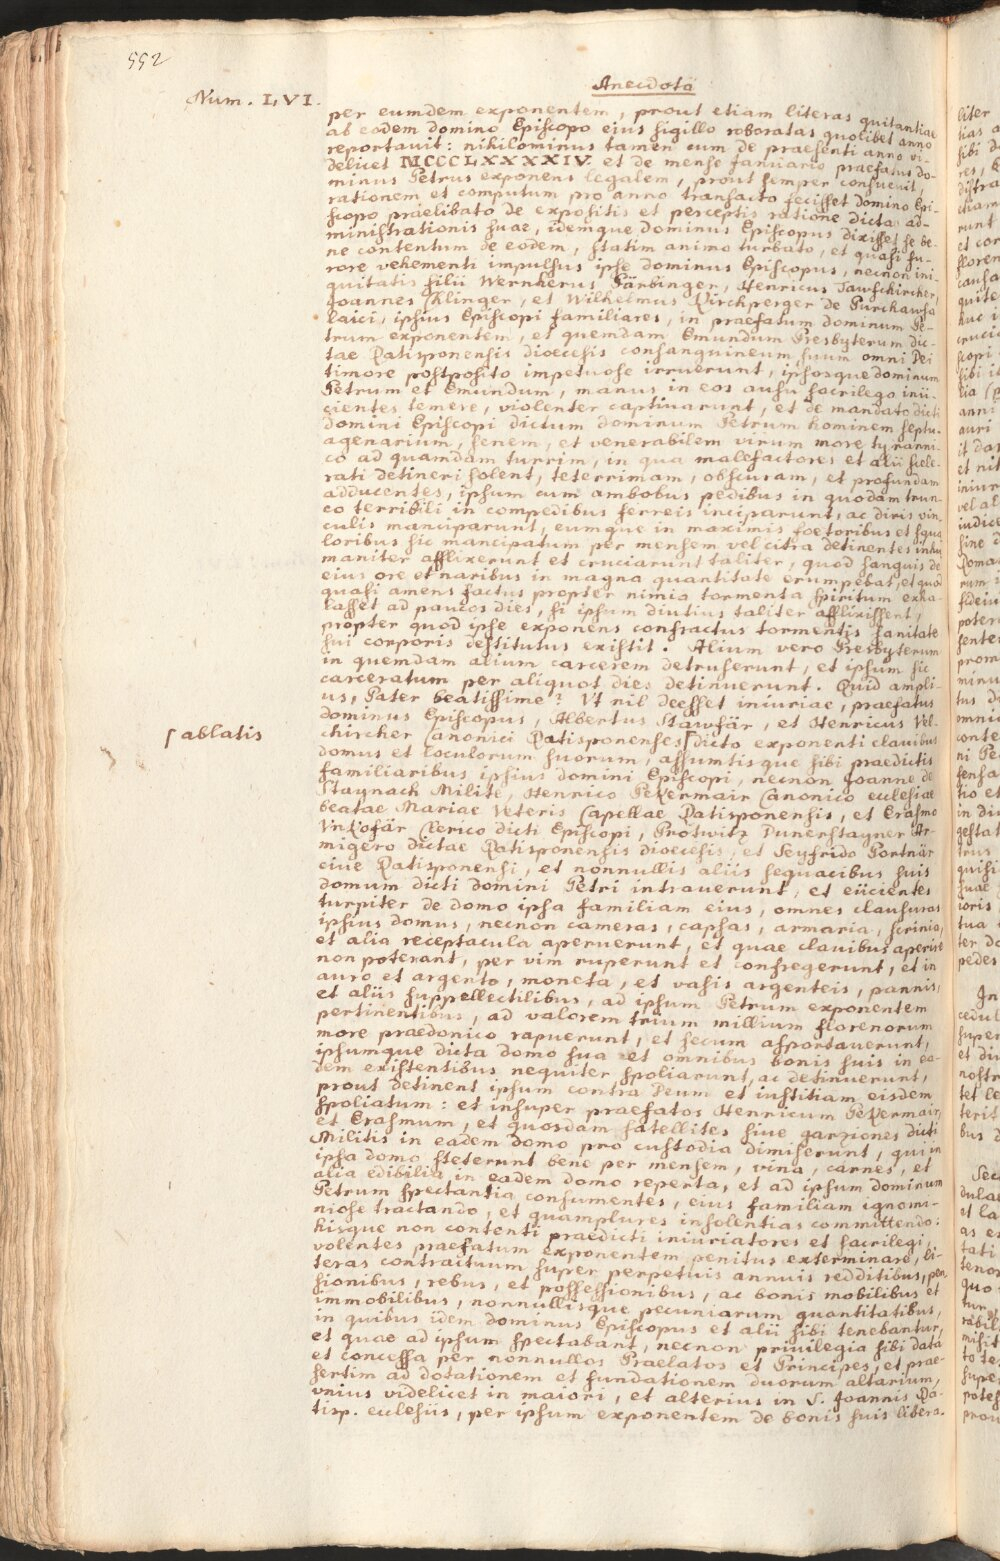 552
Anecdota
Num. LVI.
per eumdem exponentem, prout etiam literas quitantiae
ab eodem domino Episcopo eius sigillo roboratas quolibet anno
reportauit: nihilominus tamen cum de praesenti anno vi-
delicet MCCCLXXXXIV. et de mense Januario praefatus do-
minus Petrus exponens legalem, prout semper consueuit,
rationem et computum pro anno transacto fecisset domino Epi-
scopo praelibato de expositis et perceptis ratione dictae ad-
ministrationis suae, idemque dominus Episcopus dixisset se be-
ne contentum de eodem, statim animo turbato, et quasi fu-
rore vehementi impulsus ipse dominus Episcopus, necnon ini-
quitatis filii Wernherus Pärbinger, Henricus Tawfchircher,
Joannes Chlinger, et Wilhelmus Kirchperger de Purchawsa
laici, ipsius Episcopi familiares, in praefatum dominum Pe-
trum exponentem, et quemdam Emundum Presbyterum dic-
tae Ratisponensis dioecesis consanguineum suum omni Dei
timore postposito impetuose irruerunt, ipsosque dominum
Petrum et Emundum, manus in eos ausu sacrilego inii-
cientes temere, violenter captiuarunt, et de mandato dicti
domini Episcopi dictum dominum Petrum hominem septu-
agenarium, senem, et venerabilem virum more tyranni-
co ad quamdam turrim, in qua malefactores et alii scele-
rati detineri solent, teterrimam, obscuram, et profundam
adducentes, ipsum cum ambobus pedibus in quodam trun-
co terribili in compedibus ferreis inciparunt, ac diris vin-
culis manciparunt, eumque in maximis foetoribus et squa
loribus sic mancipatum per mensem vel citra detinentes inhu
maniter afflixerunt et cruciarunt taliter, quod sanguis de
eius ore et naribus in magna quantitate erumpebat, et quod
quasi amens factus propter nimia tormenta spiritum exha-
lasset ad paucos dies, si ipsum diutius taliter afflixissent,
propter quod ipse exponens confractus tormentis sanitate
sui corporis destitutus existit. Alium vero Presbyterum
in quemdam alium carcerem detruserunt, et ipsum sic
carceratum per aliquot dies detinuerunt. Quid ampli-
us, Pater beatissime? Vt nil deesset iniuriae, praefatus
dominus Episcopus, Albertus Stawfär, et Henricus Vel-
chircher Canonici Ratisponenses ⌈dicto exponenti clauibus
⌈ablatis
domus et loculorum suorum, assumtisque sibi praedictis
familiaribus ipsius domini Episcopi, necnon Joanne de
Staynach Milite, Henrico Pekermair Canonico ecclesiae
beatae Mariae Veteris Capellae Ratisponensis, et Erasmo
Vnkofär Clerico dicti Episcopi, Protwitz Dunerstayner Ar-
migero dictae Ratisponensis dioecesis, et Seyfrido Portnär
ciue Ratisponensi, et nonnullis aliis sequacibus suis
domum dicti domini Petri intrauerunt, et eiicientes
turpiter de domo ipsa familiam eius, omnes clausuras
ipsius domus, necnon cameras, capsas, armaria, scrinia,
et alia receptacula aperuerunt, et quae clauibus aperire
non poterant, per vim ruperunt et confregerunt, et in
auro et argento, moneta, et vasis argenteis, pannis,
et aliis suppellectilibus, ad ipsum Petrum exponentem
pertinentibus, ad valorem trium millium florenorum
more praedonico rapuerunt, et secum asportauerunt,
ipsumque dicta domo sua et omnibus bonis suis in ea-
dem existentibus nequiter spoliarunt, ac detinuerunt,
prout detinent ipsum contra Deum et iustitiam eisdem
spoliatum: et insuper praefatos Henricum Pekermair,
et Erasmum, et quosdam satellites siue garziones dicti
Militis in eadem domo pro custodia dimiserunt, qui in
ipsa domo steterunt bene per mensem, vina, carnes, et
alia edibilia in eadem domo reperta, et ad ipsum dominum
Petrum spectantia consumentes, eius familiam ignomi-
niose tractando, et quamplures insolentias committendo:
hisque non contenti praedicti iniuriatores et sacrilegi,
volentes praefatum exponentem penitus exterminare, li-
teras contractuum super perpetuis annuis redditibus, pen
sionibus, rebus, et possessionibus, ac bonis mobilibus et
immobilibus, nonnullisque pecuniarum quantitatibus,
in quibus idem dominus Episcopus et alii sibi tenebantur,
et quae ad ipsum spectabant, necnon priuilegia sibi data
et concessa per nonnullos Praelatos et Principes, et prae-
sertim ad dotationem et fundationem duorum altarium,
vnius videlicet in maiori, et alterius in S. Joannis Ra-
tisp. ecclesiis, per ipsum exponentem de bonis suis libera-